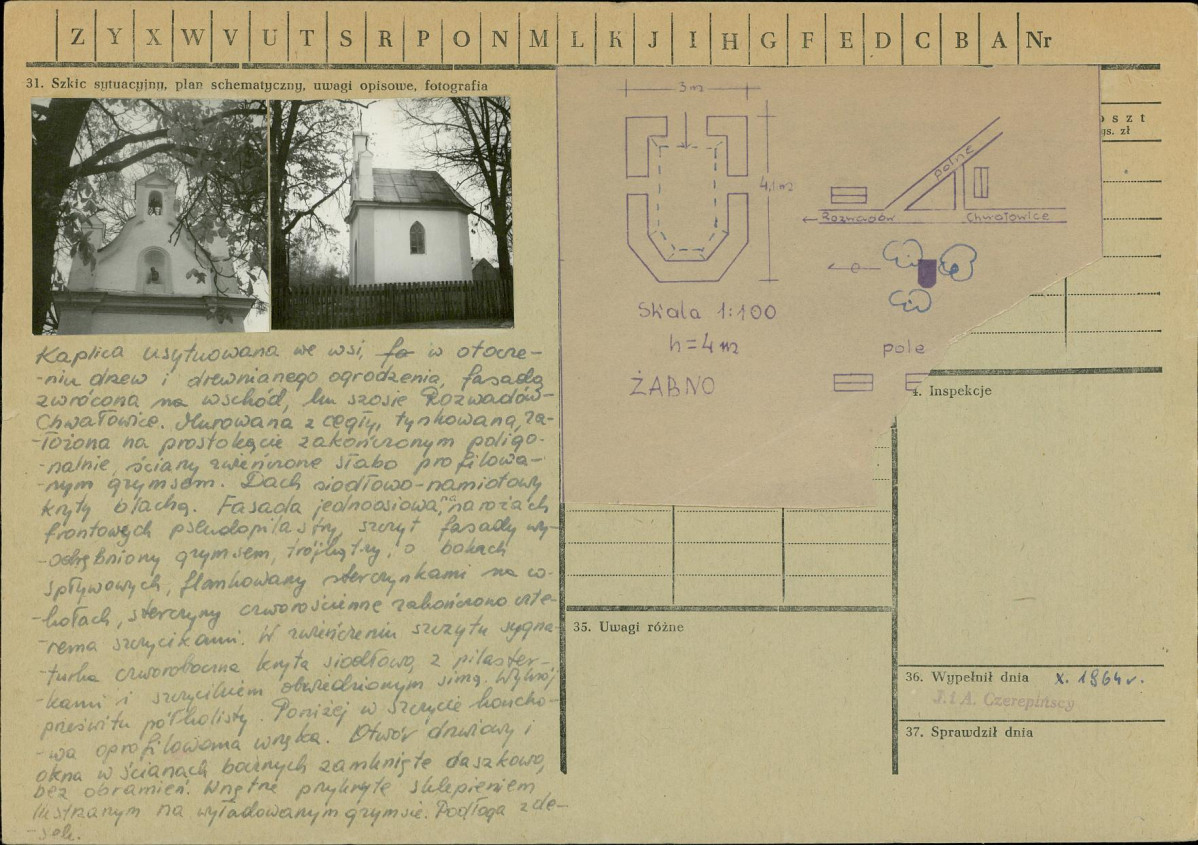 Z Y X W V U T S R P O N M L K J I H G F E D C B A Nr
31. Szkic sytuacyjny, plan schematyczny, uwagi opisowe, fotografia
Kaplica usytuowana we wsi, w otocze-
-niu drzew i drewnianego ogrodzenia, fasadą
zwrócona na wschód, ku szosie Rozwadów-
Chwałowice. Murowana z cegły, tynkowana, za-
-łożona na prostokącie zakończonym poligo-
-nalnie, ściany zwieńczone słabo profilowa-
-nym gzymsem. Dach siodłowo-namiotowy
kryty blachą. Fasada jednoosiowa, na narożach
frontowych pseudopilastry, szczyt fasady wy-
-odrębniony gzymsem, trójkątny, o bokach
spływowych, flankowany sterczynkami na co-
-kołach, sterczyny czworościenne zakończone czte-
-rema szczycikami. W zwieńczeniu szczytu sygna-
-turka czworoboczna kryta siodłowo, z pilaster-
-kami i szczycikiem obwiedzionym simą. Wykrój
prześwitu półkolisty. Poniżej w szczycie koncho-
-wa oprofilowana wnęka. Otwór drzwiowy i
okna w ścianach bocznych zamknięte daszkowo,
bez obramień. Wnętrze przykryte sklepieniem
lustrzanym na wyładowanym gzymsie. Podłoga z de-
-sek.
3m
4,1m
Skala 1:100
h=4m
ŻABNO
polne
Rozwadów
Chwałowice
pole
oszt
ys. zł
4. Inspekcje
35. Uwagi różne
36. Wypełnił dnia X. 1964r.
J. i A. Czerepińscy
37. Sprawdził dnia